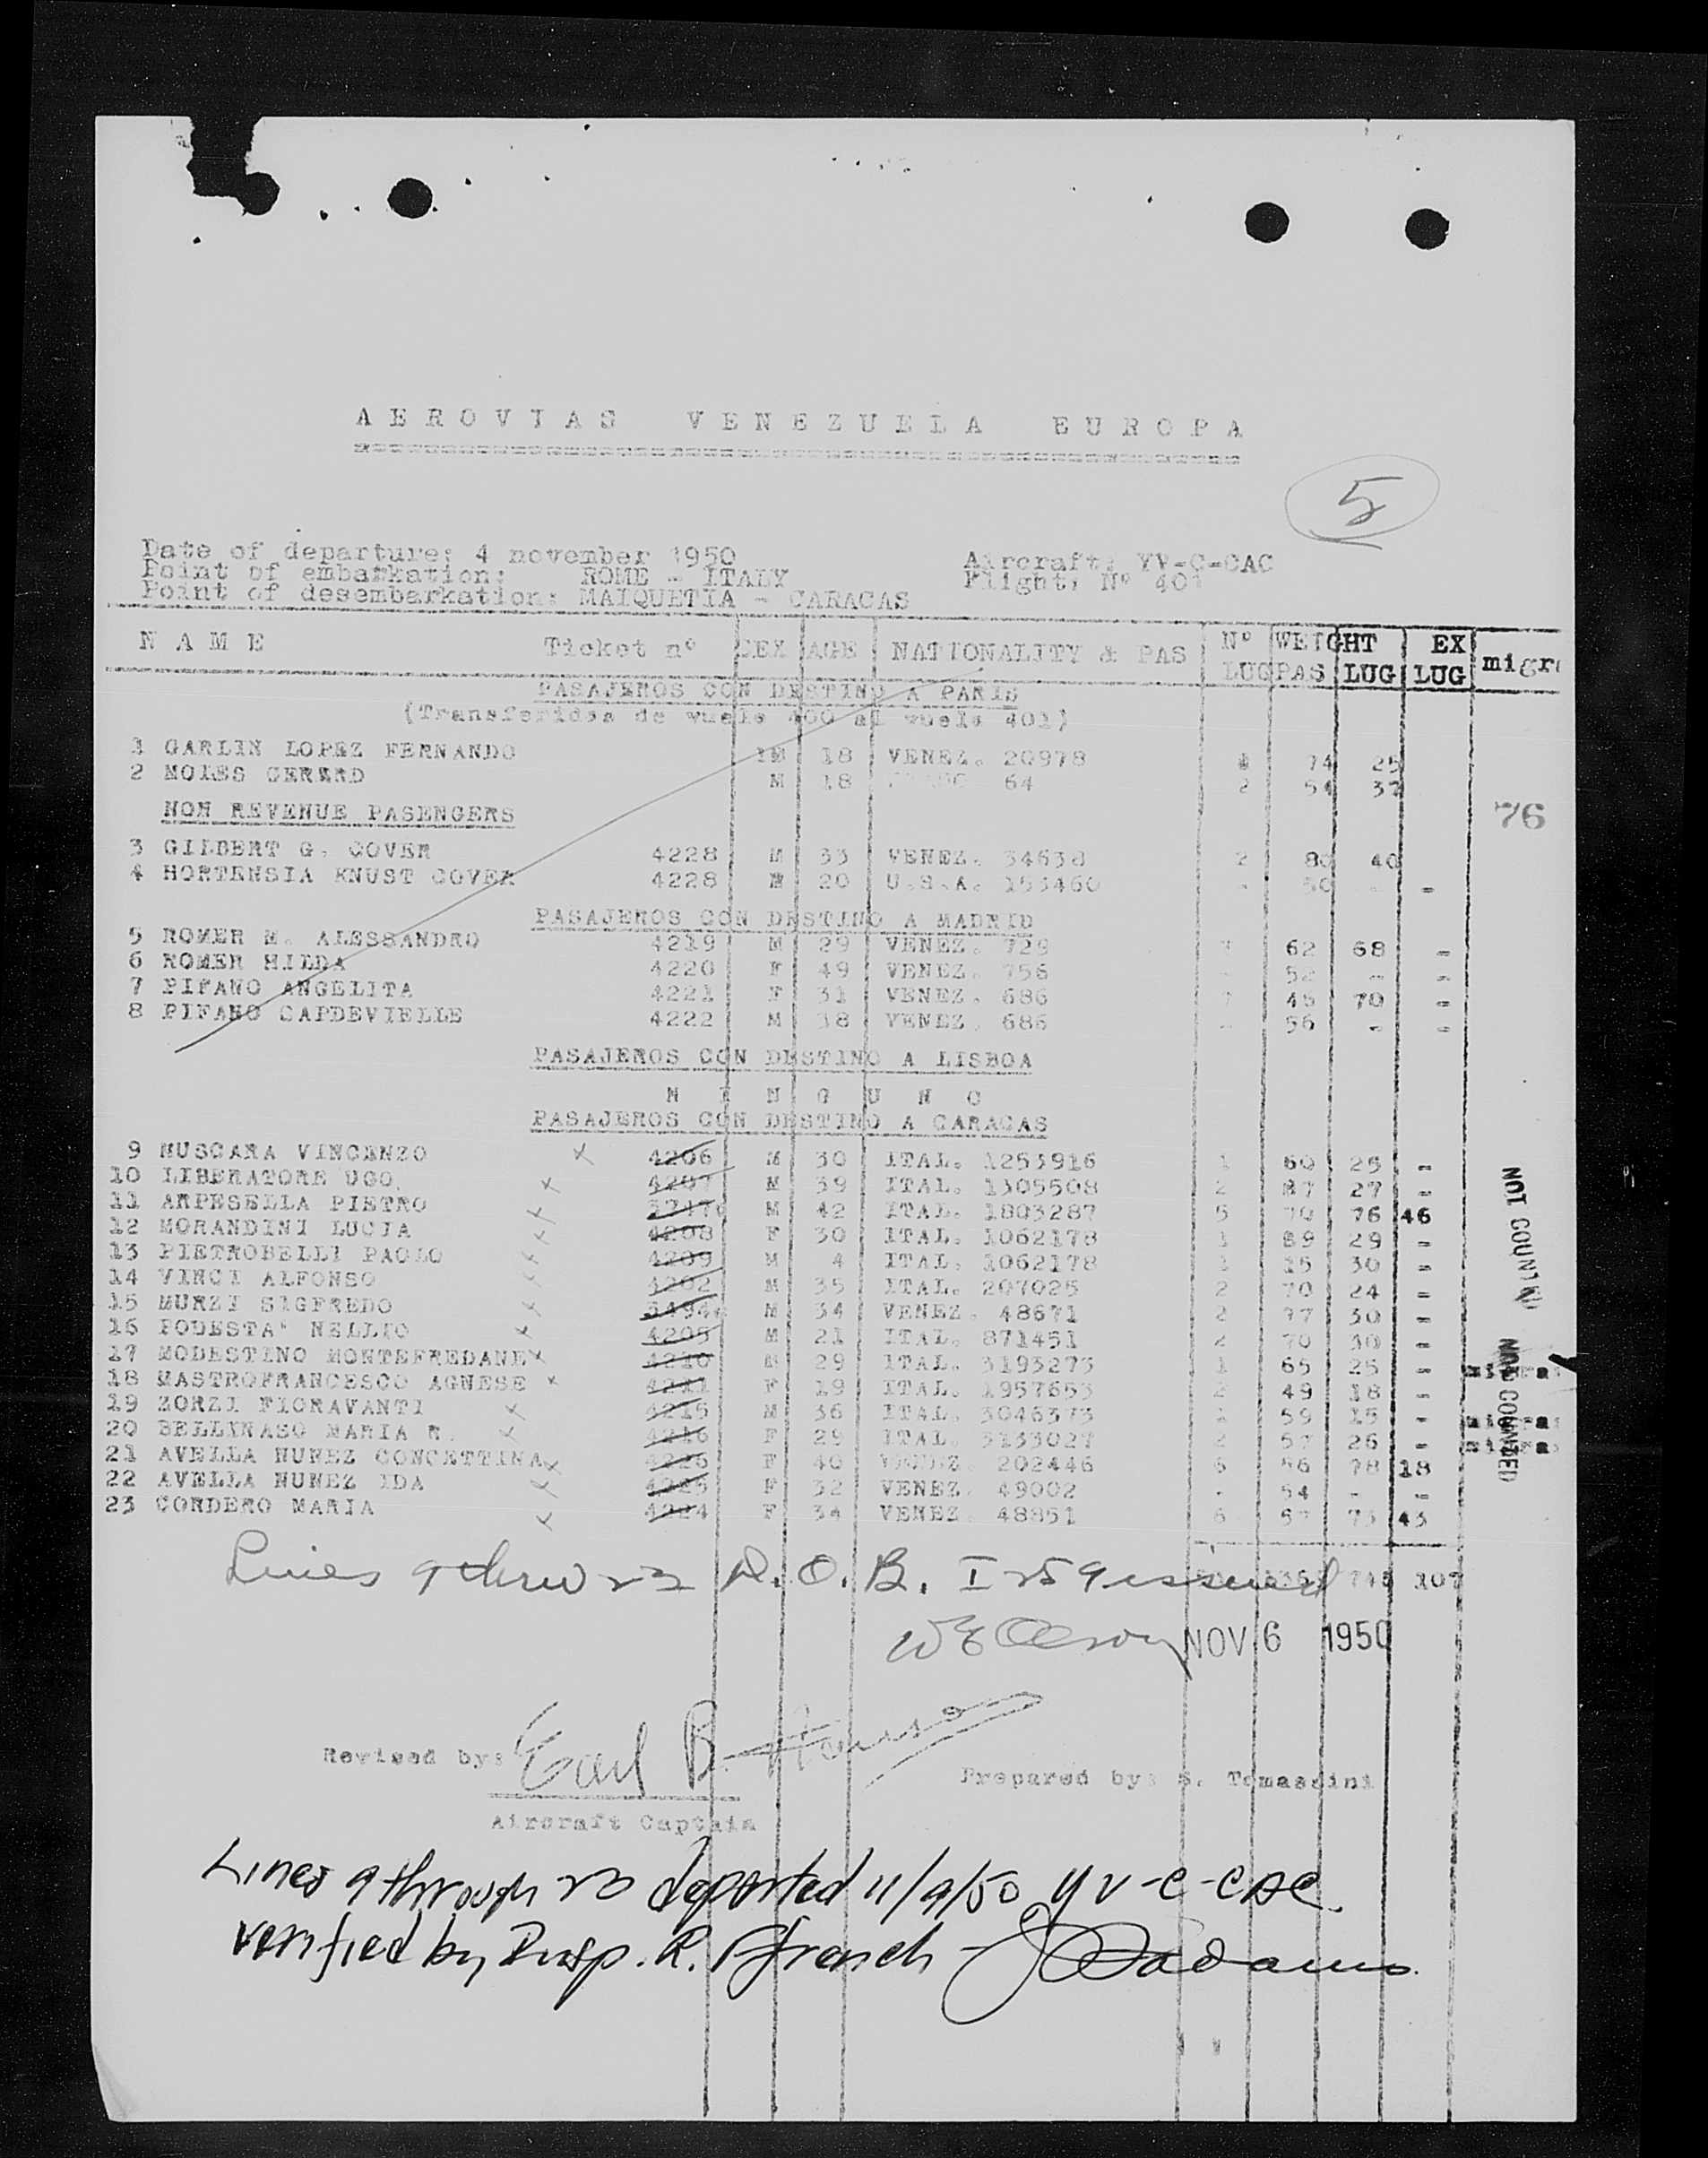 AEROVIAS VENEZUELA EUROPA
5
Date of departure: 4 november 1950 Aircraft: YV-C-CAC
Point of embarkation: ROME - ITALY Flight, Nº 401
Point of desembarkation: MAIQUETIA - CARACAS
NAME Ticket nº SEX AGE NATIONALITY & PAS Nº LUG WEIGHT PAS LUG EX LUG migra
PASAJEROS CON DESTINO A PARIS
(Transferidos de vuelo 400 al vuelo 401)
1 GARLIN LOPEZ FERNANDO M 18 VENEZ. 20978 74 25
2 MOLES GERARD M 18 64 2 54 37
76
NON REVENUE PASENGERS
3 GILBERT G. COVER 4228 M 33 VENEZ. 34638 2 80 40
4 HORTENSIA KNUST COVER 4228 20 U.S.A. 153460 - 50 - -
PASAJEROS CON DESTINO A MADRID
5 ROMER M. ALESSANDRO 4219 M 29 VENEZ. 729 62 68 -
6 ROMER HILDA 4220 F 49 VENEZ. 756 - 52 - -
7 PIFANO ANGELITA 4221 F 31 VENEZ. 686 45 70 -
8 PIFANO CAPDEVIELLE 4222 M 38 VENEZ. 686 - 56 - -
PASAJEROS CON DESTINO A LISBOA
NINGUNO
PASAJEROS CON DESTINO A CARACAS
9 MUSCARA VINCENZO x 4206 M 30 ITAL. 1253916 1 60 25 -
10 LIBERATORE UGO. x 4207 M 39 ITAL. 1305508 2 87 27 -
11 ARPESELLA PIETRO x M 42 ITAL. 1803287 5 70 76 46
12 MORANDINI LUCIA x 4208 F 30 ITAL. 1062178 1 89 29 -
13 PIETROBELLI PAOLO x 4209 M 4 ITAL. 1062178 1 15 30 -
14 VINCI ALFONSO x 4202 M 35 ITAL. 207025 2 70 24 -
15 MURZI SIGFREDO x M 34 VENEZ. 48671 2 77 30 -
16 PODESTA' NELLIO x 4205 M 21 ITAL. 871451 2 70 30 -
17 MODESTINO MONTEFREDANE x 4210 M 29 ITAL. 3193273 1 65 25 -
18 MASTROFRANCESCO AGNESE x 4211 F 19 ITAL. 1957653 2 49 18 -
19 ZORZI FIORAVANTI x 4215 M 36 ITAL. 3046373 1 59 15 -
20 BELLINASO MARIA x 4216 F 29 ITAL. 3133027 2 57 26 -
21 AVELLA NUNEZ CONCETTINA x 4226 F 40 VENEZ. 202446 6 56 78 18
22 AVELLA NUNEZ IDA x 4225 F 32 VENEZ. 49002 - 54 - -
23 CORDERO MARIA x 4224 F 34 VENEZ. 48851 6 57 73 43
NOT COUNTED
NOT COUNTED
Lines 9 thru 23 D.O.B. I 259 issued 107
NOV 6 1950
Revised by: Earl B.
Prepared by: S. Tomassini
Aircraft Captain
Lines 9 through 23 departed 11/9/50 YV-C-CAC.
verified by Insp. R. French - Adams